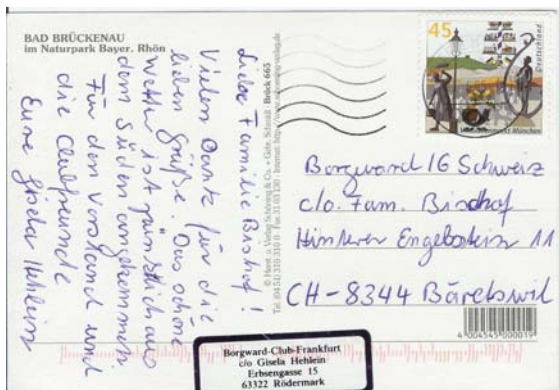 BAD BRÜCKENAU
im Naturpark Bayer. Rhön
Liebe Familie Bischof!
Vielen Dank für die
lieben Grüße. Das schöne
Wetter ist pünktlich aus
dem Süden angekommen
Für den Vorstand und
die Clubfreunde
Eure Gisela Hehlein
Brück 665
45
Deutschland
München
Borgward IG Schweiz
c/o. Fam. Bischof
Hinterer Engelstein 11
CH-8344 Bäretswil
4 004545 000019
Borgward-Club-Frankfurt
c/o Gisela Hehlein
Erbsengasse 15
63322 Rödermark